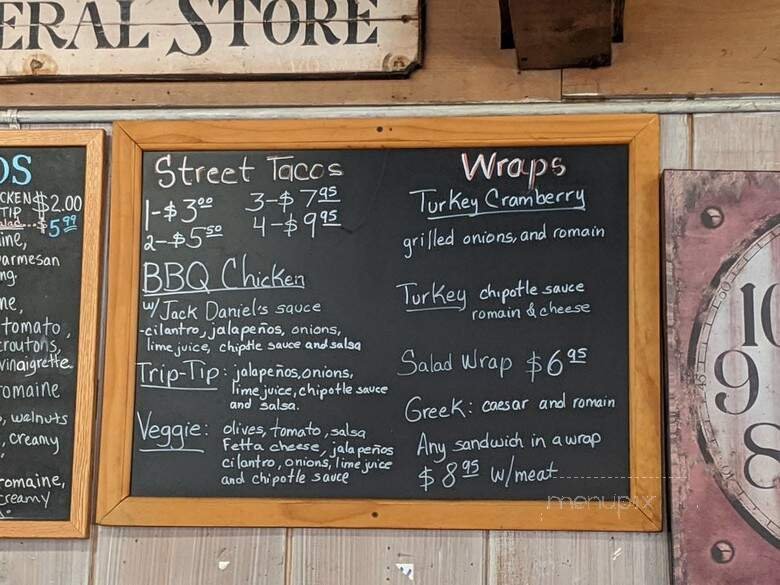 ERAL STORE
OS
CKEN $2.00
TIP
$5.99
ine,
armesan
ng.
ne,
tomato,
croutons,
vinaigrette
omaine
, walnuts
, creamy
omaine,
creamy
Street Tacos
1-$3.00 3-$7.95
2-$5.50 4-$9.95
BBQ Chicken
w/ Jack Daniel's sauce
-cilantro, jalapeños, onions,
lime juice, chiptle sauce and salsa
Trip-Tip: jalapeños, onions,
lime juice, chipotle sauce
and salsa.
Veggie: olives, tomato, salsa
Fetta cheese, jalapeños
cilantro, onions, lime juice
and chipotle sauce
Wraps
Turkey Cramberry
grilled onions, and romain
Turkey chipotle sauce
romain & cheese
Salad Wrap $6.95
Greek: caesar and romain
Any sandwich in a wrap
$8.95 w/meat
menupix
10
9
8